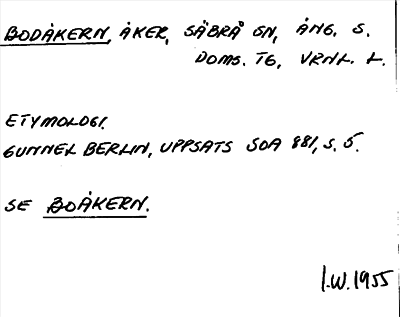 BODÅKERN, ÅKER, SÄBRÅ SN, ÅNG. S.
DOMS. TG, VRNL. L.
ETYMOLOGI.
GUNNEL BERLIN, UPPSATS SOA 881, S. 5.
SE BOÅKERN.
I.W. 1955